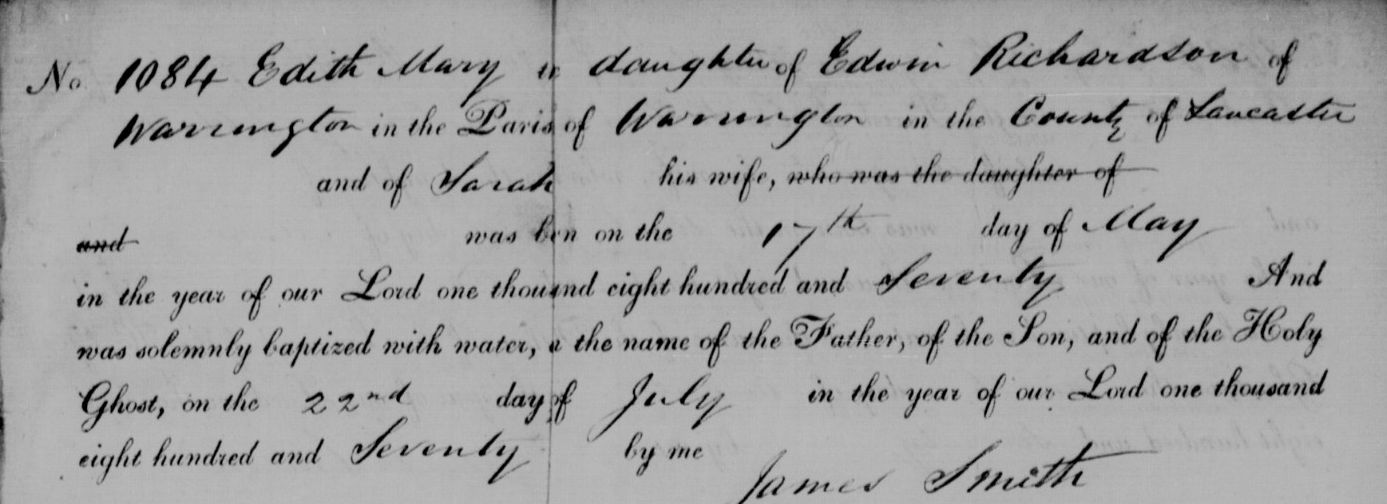 No 1084 Edith Mary daughter of Edwin Richardson of
Warrington in the Paris of Warrington in the County of Lancaster
and of Sarah his wife, who was the daughter of
and was bon on the 17th day of May
in the year of our Lord one thousand eight hundred and Seventy And
was solemnly baptized with water, n the name of the Father, of the Son, and of the Holy
Ghost, on the 22nd day of July in the year of our Lord one thousand
eight hundred and Seventy by me
James Smith